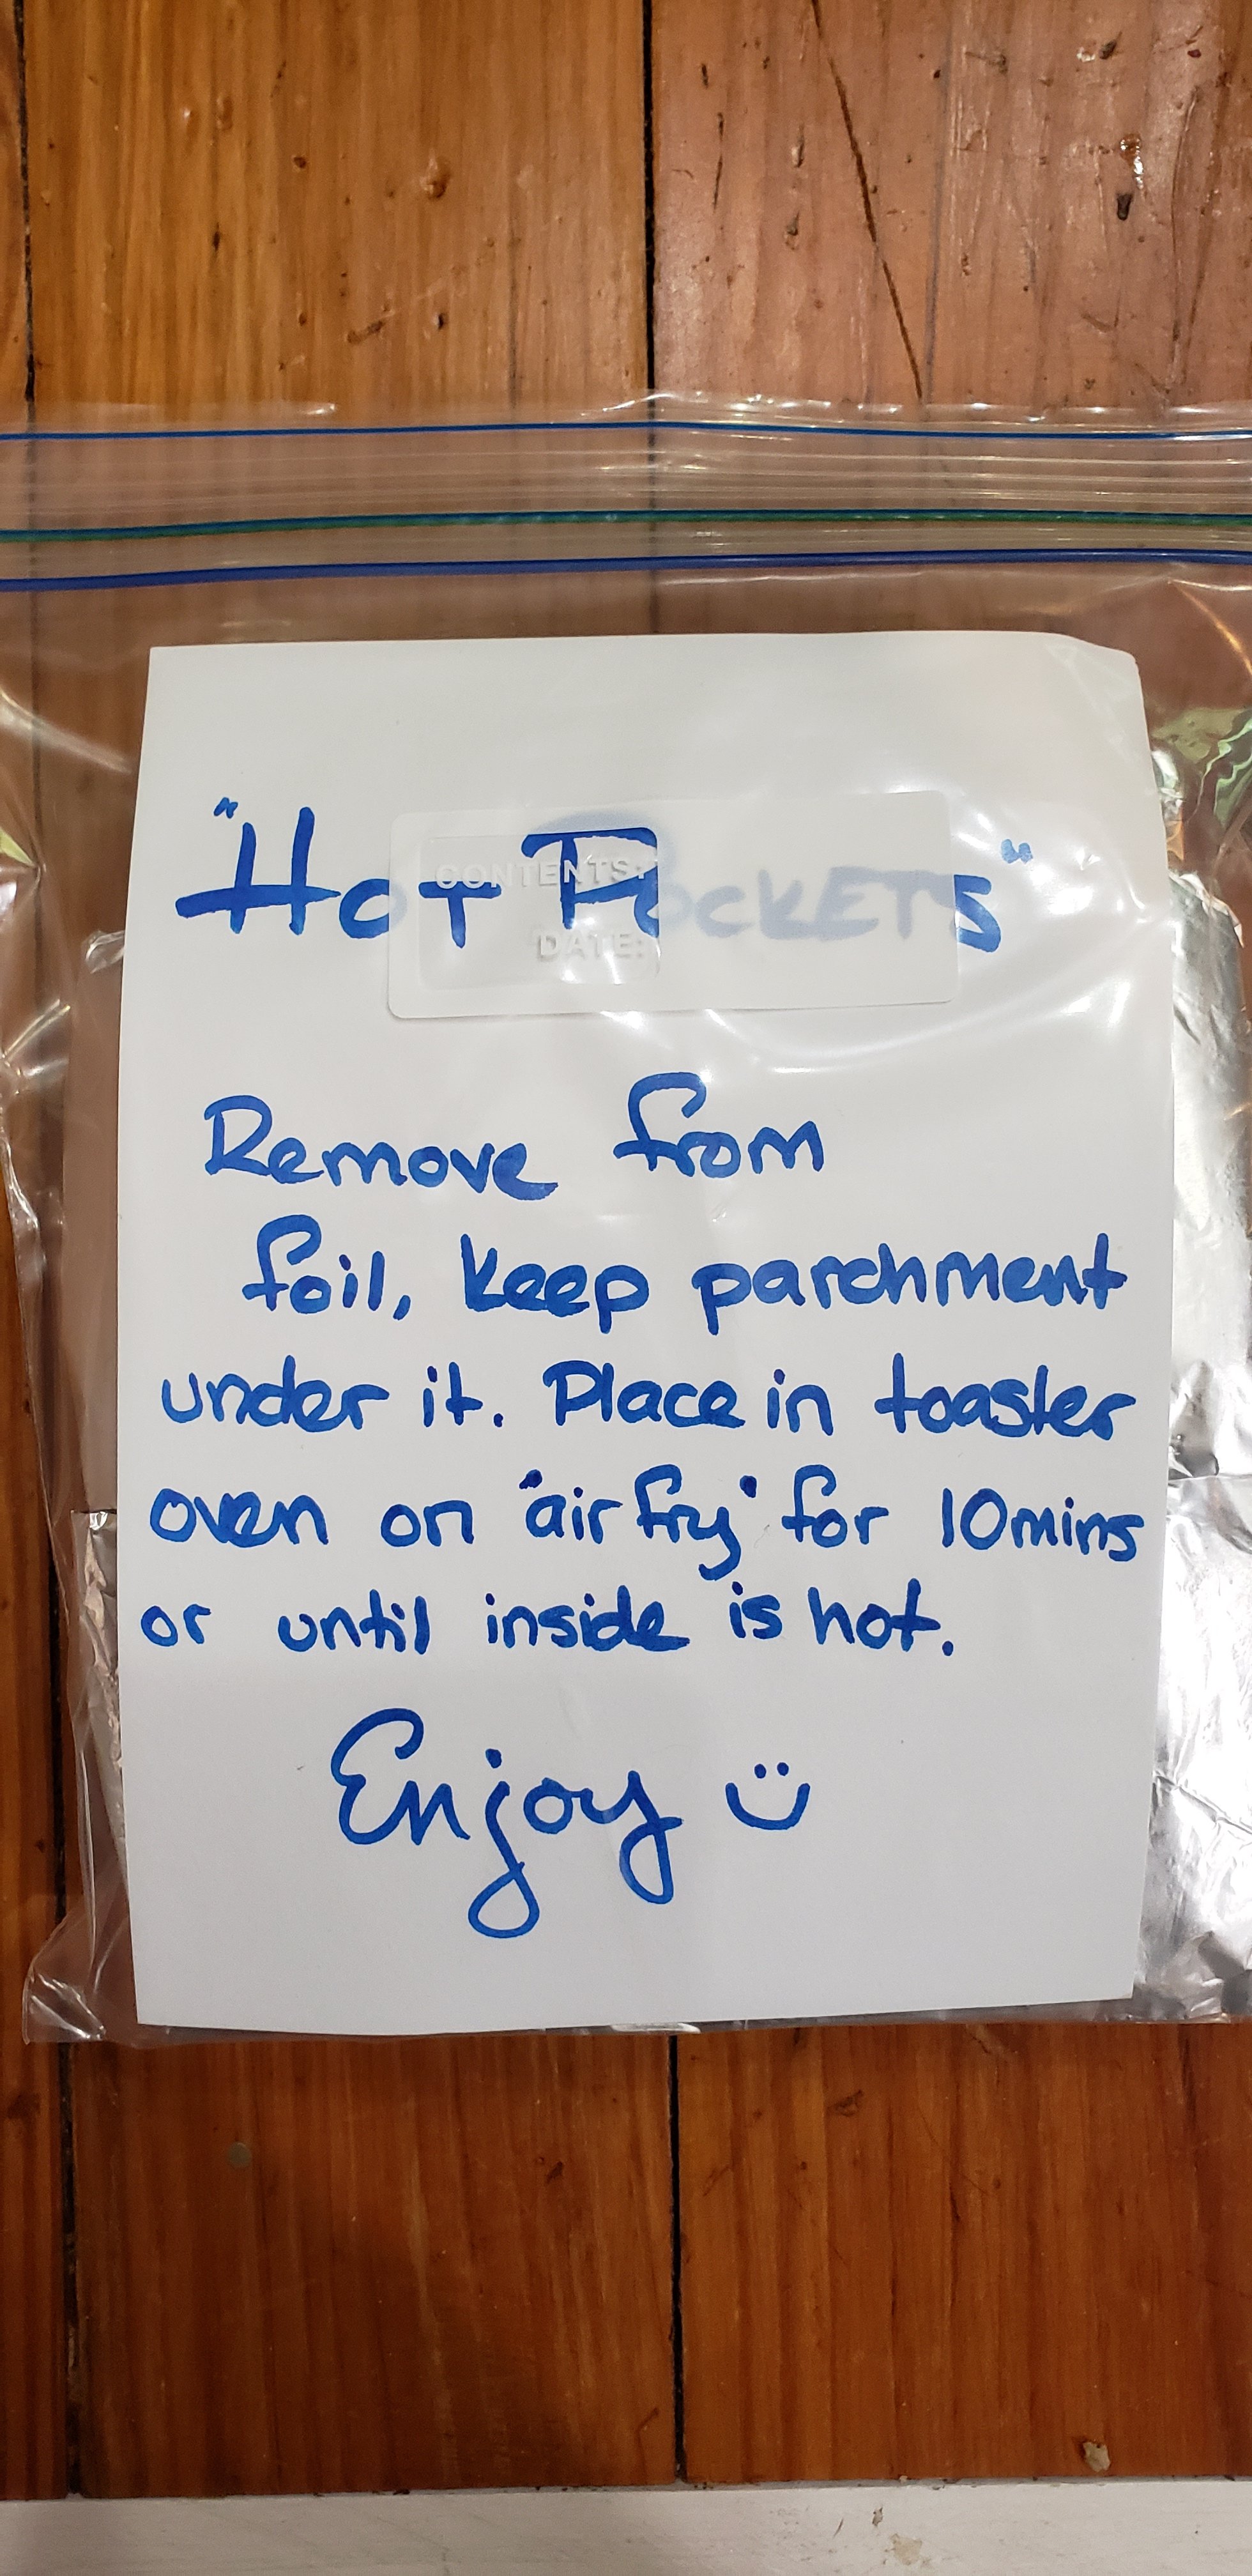 "Hot Pockets"
CONTENTS:
DATE:
Remove from
foil, keep parchment
under it. Place in toaster
oven on "air fry" for 10mins
or until inside is hot.
Enjoy :)